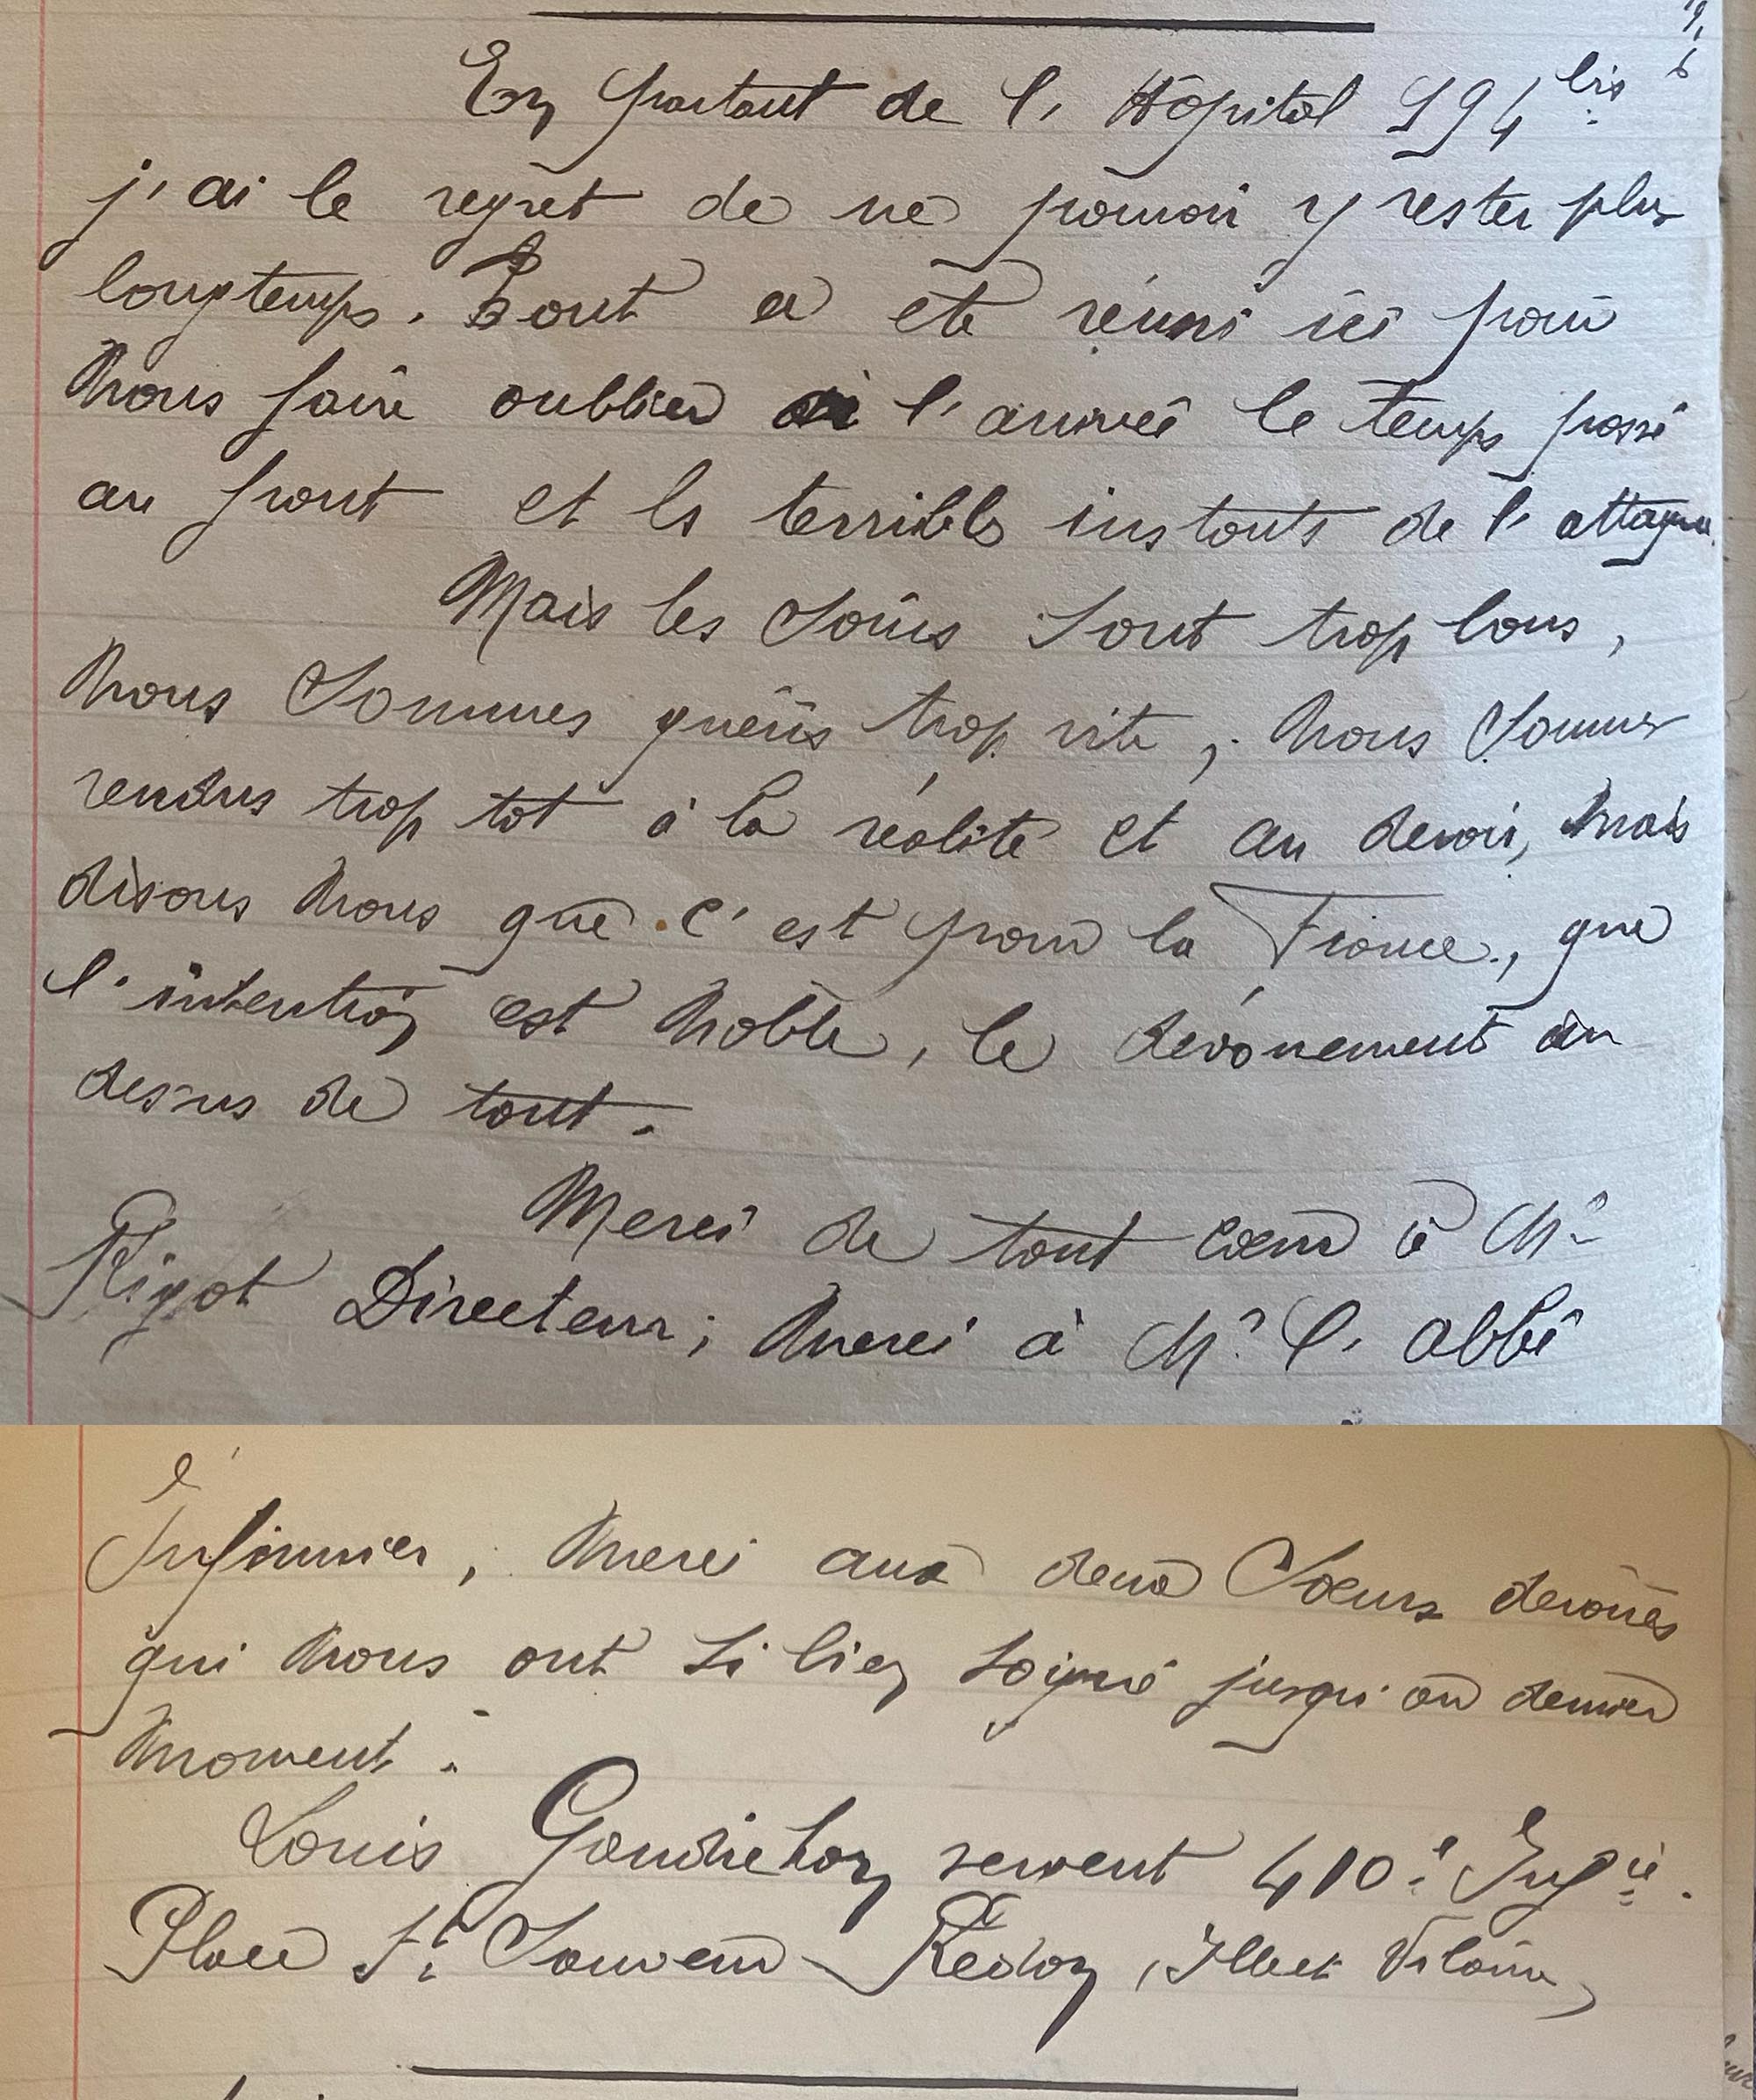 En partant de l'Hôpital 194 bis
j'ai le regret de ne pouvoir y rester plus
longtemps. Tout a été réuni ici pour
nous faire oublier à l'arrivée le temps passé
au front et les terribles instants de l'attaque.
Mais les soins sont trop bons,
nous sommes guéris trop vite, nous sommes
rendus trop tôt à la réalité et au devoir, mais
disons nous que c'est pour la France, que
l'intention est noble, le dévouement au
dessus de tout.
Merci de tout cœur à Mr
Rigot Directeur ; merci à Mr l'abbé
Infirmier, merci aux deux Sœurs dévouées
qui nous ont si bien soigné jusqu'au dernier
moment.
Louis Gaudichon sergent 410e Infie.
Place St Sauveur - Redon (Ille et Vilaine)